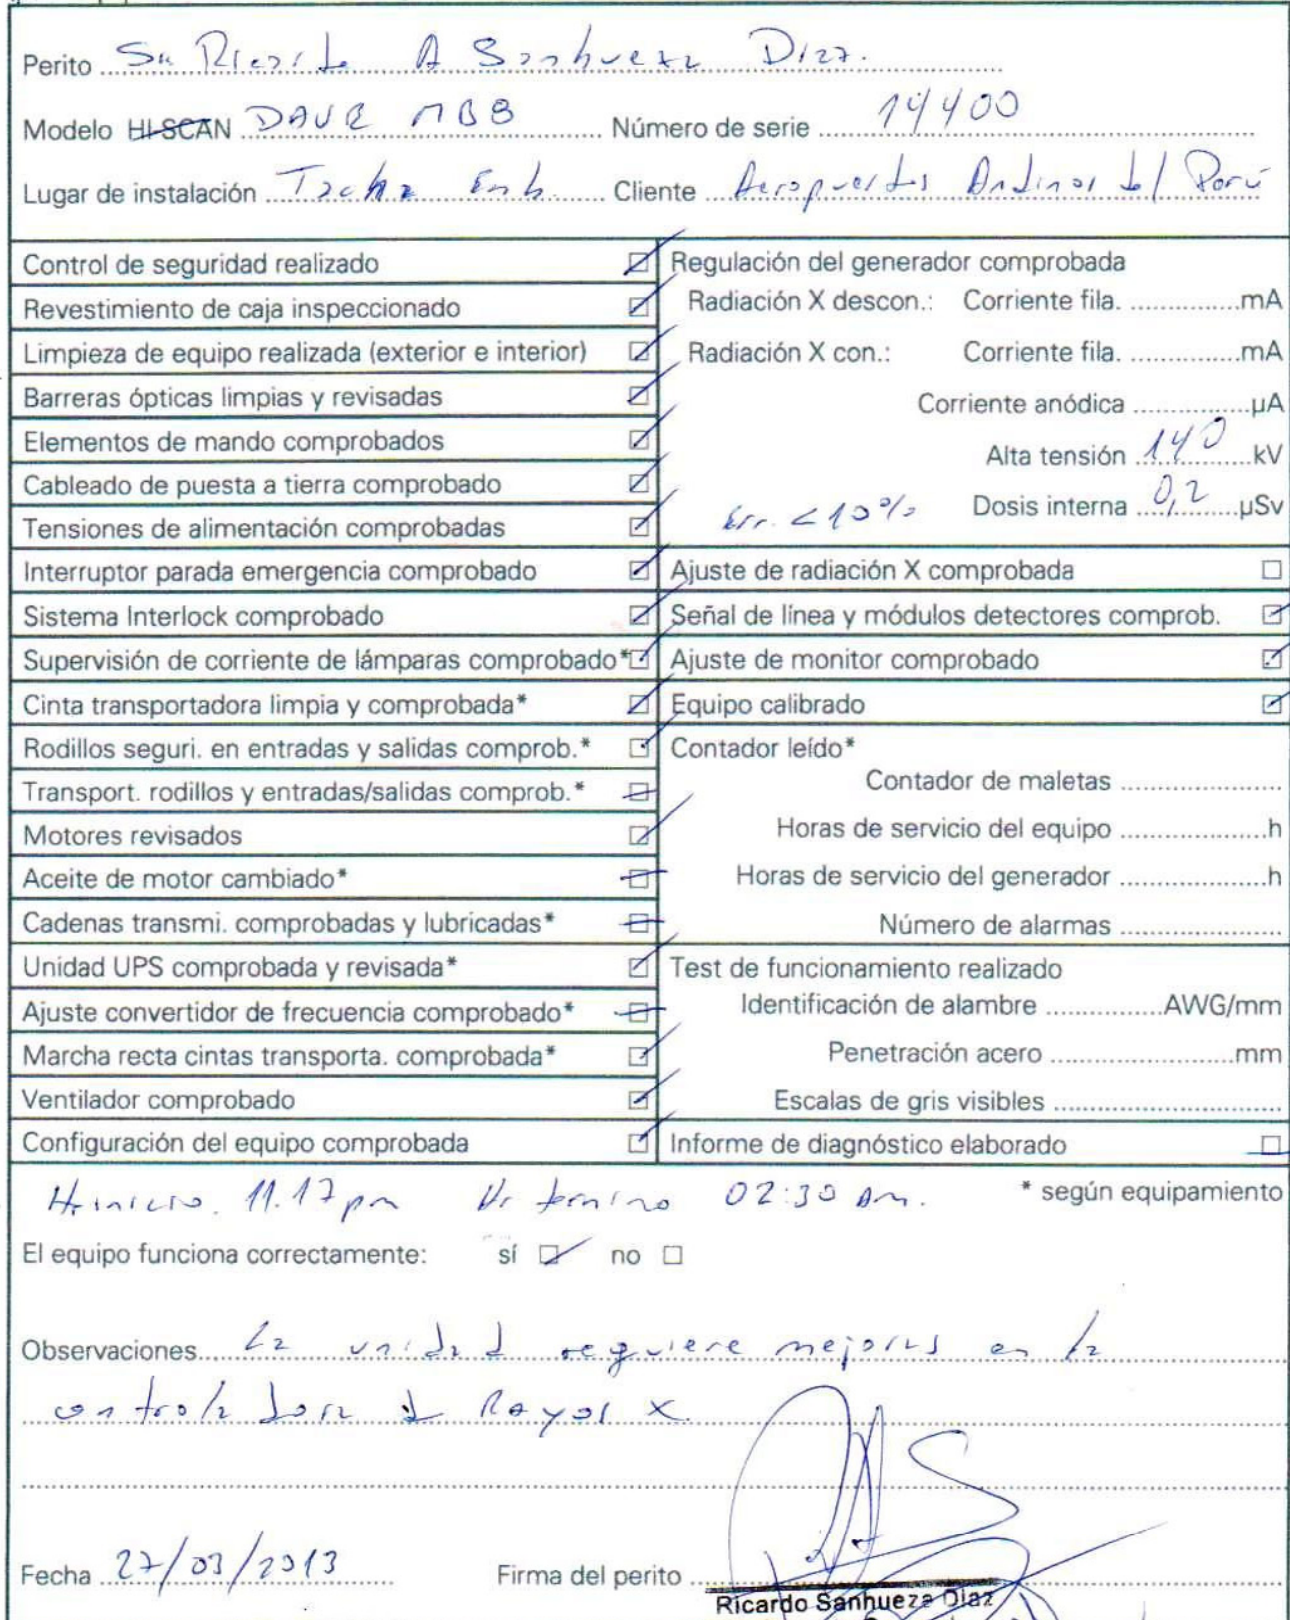 Perito Sr. Ricardo A Sanhueza Diaz.
Modelo HI-SCAN Número de serie 14400
Lugar de instalación Tacna Emb. Cliente Aeropuertos Andinos del Perú
Control de seguridad realizado
Revestimiento de caja inspeccionado
Limpieza de equipo realizada (exterior e interior)
Barreras ópticas limpias y revisadas
Elementos de mando comprobados
Cableado de puesta a tierra comprobado
Tensiones de alimentación comprobadas
Interruptor parada emergencia comprobado
Sistema Interlock comprobado
Supervisión de corriente de lámparas comprobado*
Cinta transportadora limpia y comprobada*
Rodillos seguri. en entradas y salidas comprob.*
Transport. rodillos y entradas/salidas comprob.*
Motores revisados
Aceite de motor cambiado*
Cadenas transmi. comprobadas y lubricadas*
Unidad UPS comprobada y revisada*
Ajuste convertidor de frecuencia comprobado*
Marcha recta cintas transporta. comprobada*
Ventilador comprobado
Configuración del equipo comprobada
Regulación del generador comprobada
Radiación X descon.: Corriente fila. mA
Radiación X con.: Corriente fila. mA
Corriente anódica µA
Alta tensión 140 kV
Err. < 10% Dosis interna 0,2 µSv
Ajuste de radiación X comprobada
Señal de línea y módulos detectores comprob.
Ajuste de monitor comprobado
Equipo calibrado
Contador leído*
Contador de maletas
Horas de servicio del equipo h
Horas de servicio del generador h
Número de alarmas
Test de funcionamiento realizado
Identificación de alambre AWG/mm
Penetración acero mm
Escalas de gris visibles
Informe de diagnóstico elaborado
Hr inicio. 11.17 pm Hr termino 02:30 am. * según equipamiento
El equipo funciona correctamente: sí no
Observaciones La unidad requiere mejoras en la
controladora de Rayos X
Fecha 27/03/2013 Firma del perito
Ricardo Sanhueza Diaz